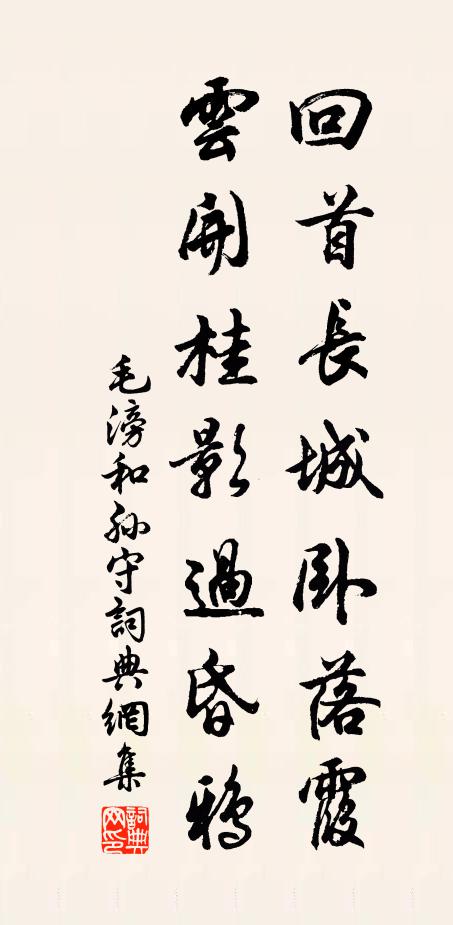 回首長城卧落霞
雲開桂影過昏鴉
毛滂和孙守詞典網集
詞典
网印